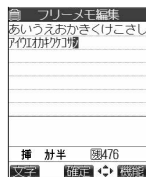 フリーメモ編集
あいうえおかきくけこさし
アイウエオカキクケコサシ
挿 カナ半 残476
文字 確定 機能